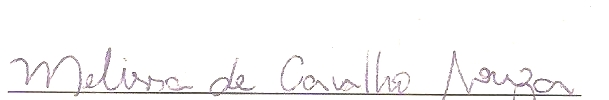 Melissa de Carvalho Souza